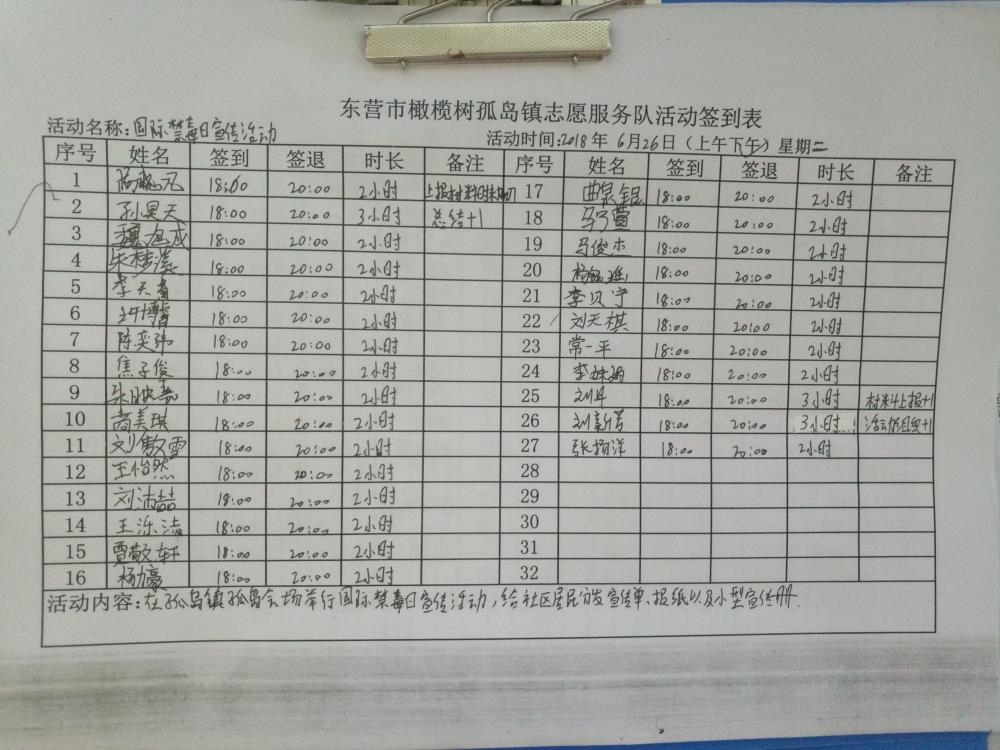 东营市橄榄树孤岛镇志愿服务队活动签到表
活动名称:国际禁毒日宣传活动 活动时间:2018年 6月26日(上午下午)星期二
序号 姓名 签到 签退 时长 备注 序号 姓名 签到 签退 时长 备注
1 18:00 20:00 2小时 17 曲泉锟 18:00 20:00 2小时
2 孙昊天 18:00 20:00 3小时 总结+1 18 马子萱 18:00 20:00 2小时
3 18:00 20:00 2小时 19 马俊杰 18:00 20:00 2小时
4 18:00 20:00 2小时 20 18:00 20:00 2小时
5 李天 18:00 20:00 2小时 21 李贝宁 18:00 20:00 2小时
6 18:00 20:00 2小时 22 刘天棋 18:00 20:00 2小时
7 陈奕玮 18:00 20:00 2小时 23 常一平 18:00 20:00 2小时
8 焦子俊 18:00 20:00 2小时 24 李 18:00 20:00 2小时
9 18:00 20:00 2小时 25 刘丹 18:00 20:00 3小时 材料上报+1
10 尚美琪 18:00 20:00 2小时 26 刘新菁 18:00 20:00 3小时 活动组织+1
11 刘傲雪 18:00 20:00 2小时 27 张扬洋 18:00 20:00 2小时
12 王怡然 18:00 20:00 2小时 28
13 刘沛喆 18:00 20:00 2小时 29
14 王泺洁 18:00 20:00 2小时 30
15 贾敬轩 18:00 20:00 2小时 31
16 杨濠 18:00 20:00 2小时 32
活动内容:在孤岛镇孤岛会场举行国际禁毒日宣传活动,给社区居民分发宣传单、报纸以及小型宣传册.